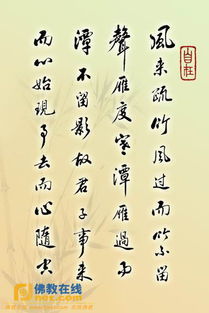 風来疏竹風過而竹不留
聲雁度寒潭雁過而
潭不留影故君子事来
而心始現事去而心随空
自在
佛教在线